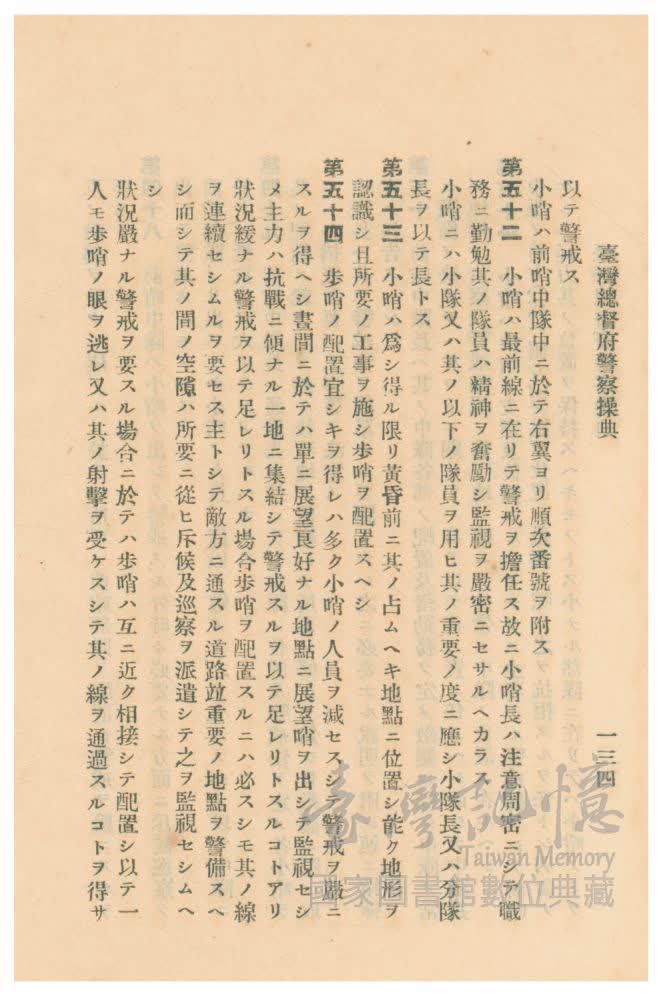 臺灣總督府警察操典
一三四
以テ警戒ス
小哨ハ前哨中隊中ニ於テ右翼ヨリ順次番號ヲ附ス
第五十二　小哨ハ最前線ニ在リテ警戒ヲ擔任ス故ニ小哨長ハ注意周密ニシテ職
務ニ勤勉其ノ隊員ハ精神ヲ奮勵シ監視ヲ嚴密ニセサルヘカラス
小哨ニハ小隊又ハ其ノ以下ノ隊員ヲ用ヒ其ノ重要ノ度ニ應シ小隊長又ハ分隊
長ヲ以テ長トス
第五十三　小哨ハ爲シ得ル限リ黃昏前ニ其ノ占ムヘキ地點ニ位置シ能ク地形ヲ
認識シ且所要ノ工事ヲ施シ步哨ヲ配置スヘシ
第五十四　步哨ノ配置宜シキヲ得レハ多ク小哨ノ人員ヲ減セスシテ警戒ヲ嚴ニ
スルヲ得ヘシ晝間ニ於テハ單ニ展望良好ナル地點ニ展望哨ヲ出シテ監視セシ
メ主力ハ抗戰ニ便ナル一地ニ集結シテ警戒スルヲ以テ足レリトスルコトアリ
狀況緩ナル警戒ヲ以テ足レリトスル場合步哨ヲ配置スルニハ必スシモ其ノ線
ヲ連續セシムルヲ要セス主トシテ敵方ニ通スル道路竝重要ノ地點ヲ警備スヘ
シ而シテ其ノ間ノ空隙ハ所要ニ從ヒ斥候及巡察ヲ派遣シテ之ヲ監視セシムヘ
シ
狀況嚴ナル警戒ヲ要スル場合ニ於テハ步哨ハ互ニ近ク相接シテ配置シ以テ一
人モ步哨ノ眼ヲ逃レ又ハ其ノ射擊ヲ受ケスシテ其ノ線ヲ通過スルコトヲ得サ
臺灣記憶
Taiwan Memory
國家圖書館數位典藏